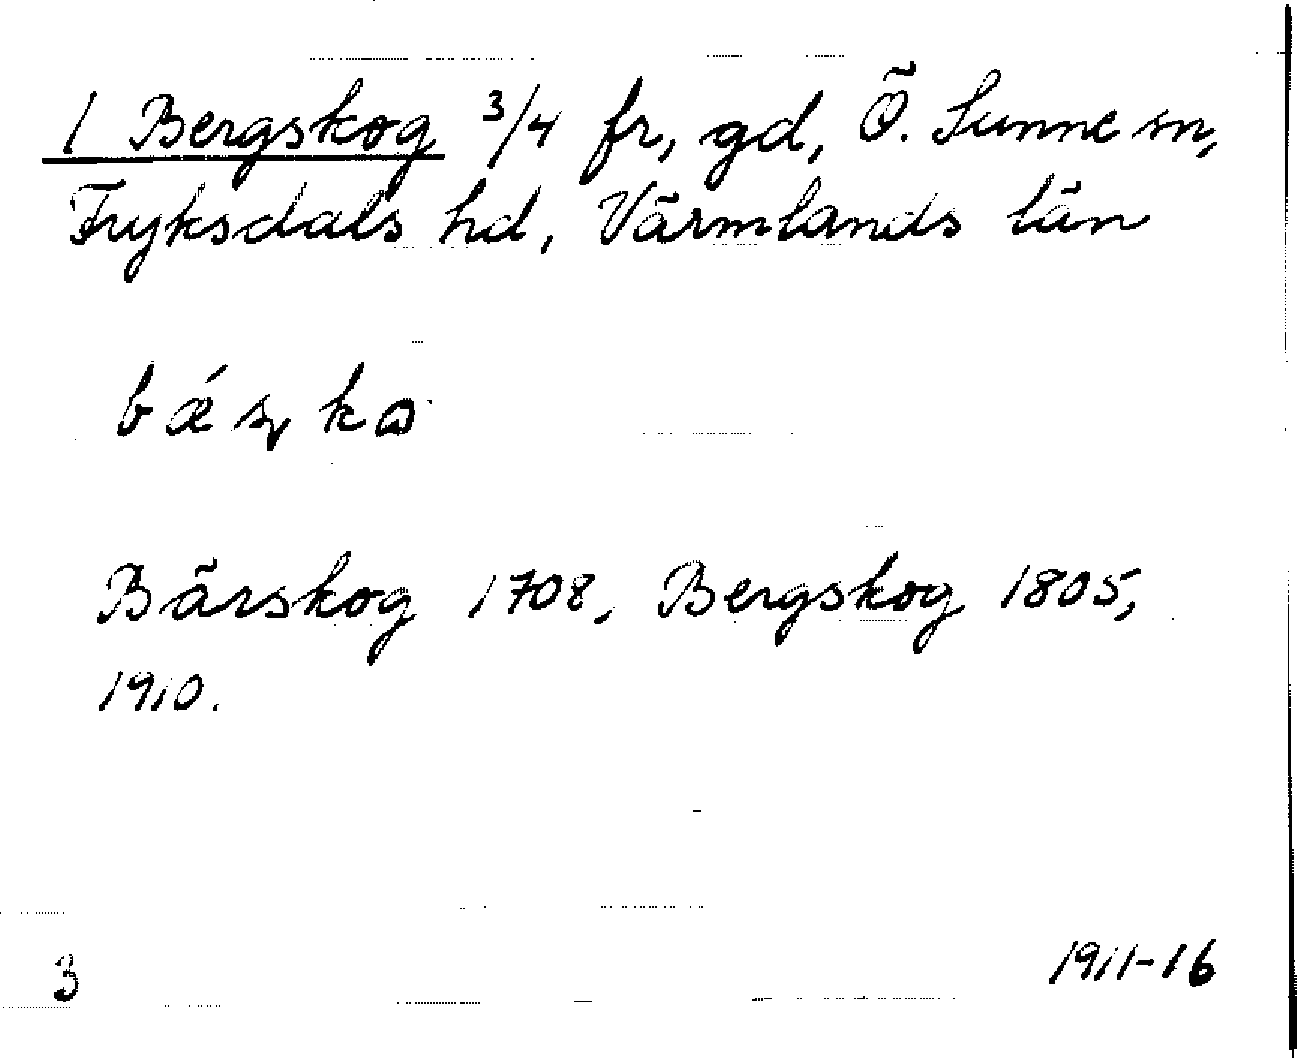 1 Bergskog 3/4 fr, gd, Ö. Sunne sn,
Fryksdals hd, Värmlands län
bǽʂkɷ
Bärskog 1708, Bergskog 1805,
1910.
3
1911-16